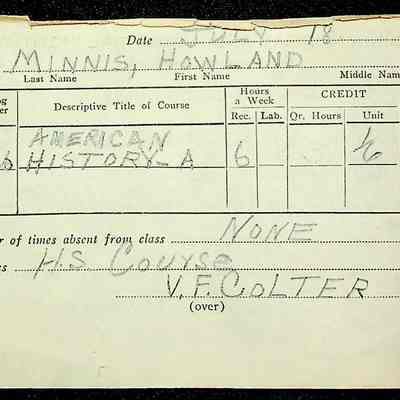 Date JULY 18
MINNIS, HOWLAND
Last Name First Name Middle Nam
og Descriptive Title of Course Hours a Week CREDIT
er Rec. Lab. Qr. Hours Unit
AMERICAN
HISTORY-A 6 ½
r of times absent from class NONE
s H.S COURSE
V.F. COLTER
(over)